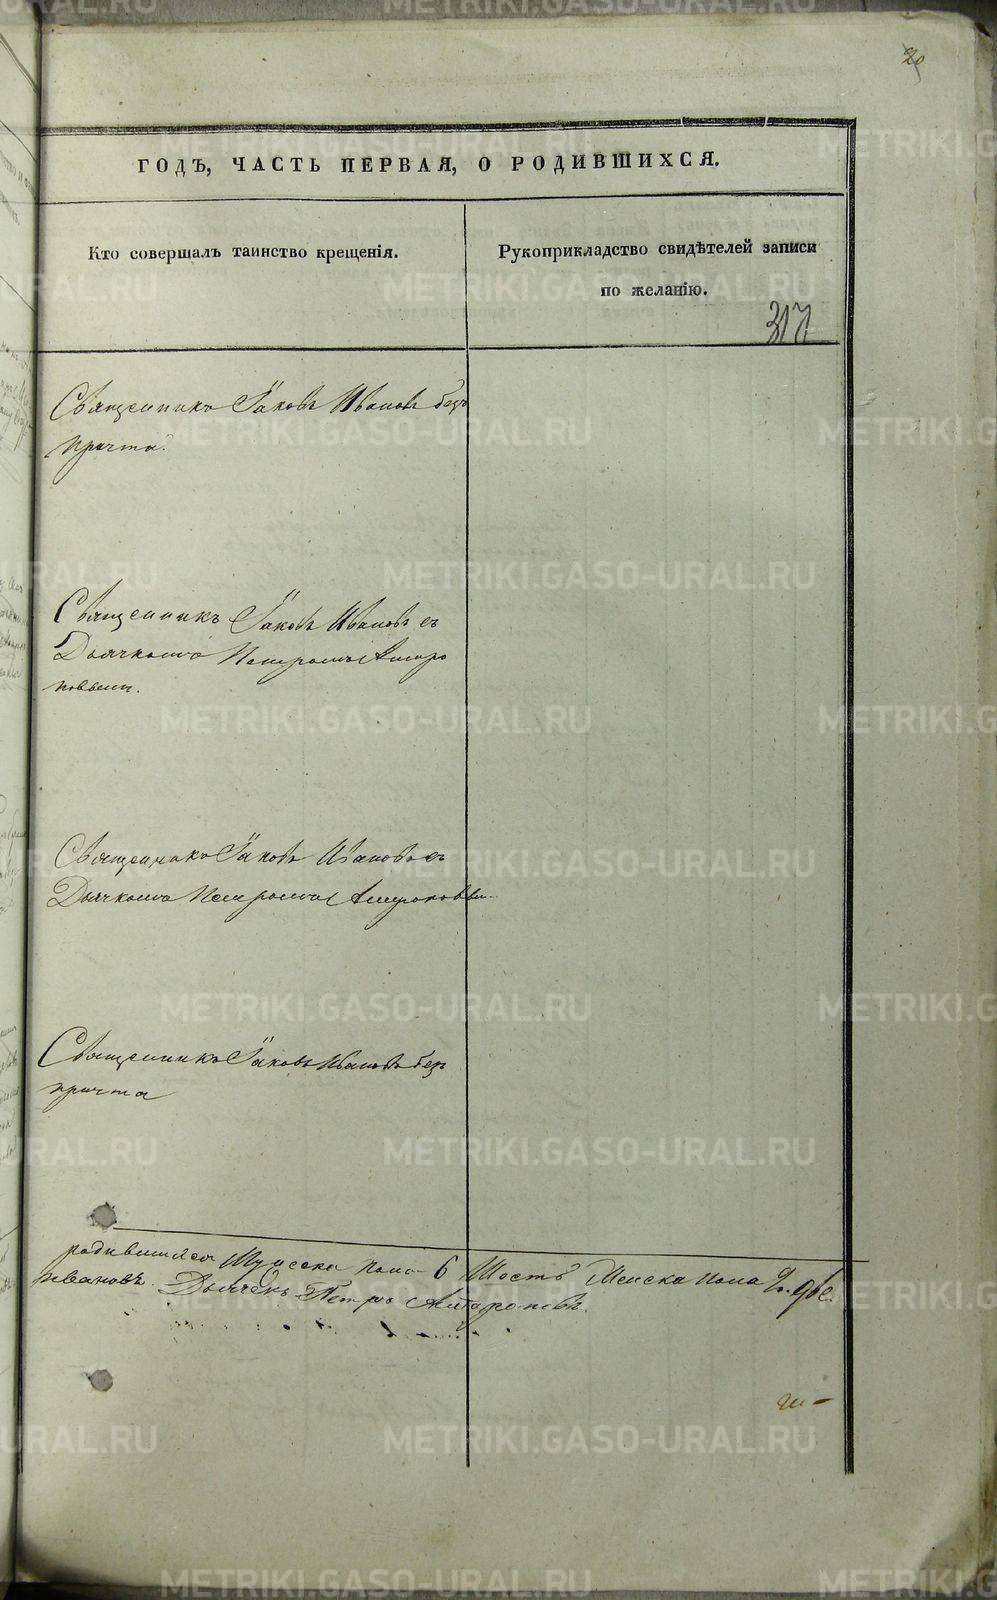 20
ГОДЪ, ЧАСТЬ ПЕРВАЯ, О РОДИВШИХСЯ.
Кто совершалъ таинство крещенія.
Рукоприкладство свидѣтелей записи
по желанію.
317
Священникъ Іаковъ Ивановъ безъ
причта.
Священникъ Іаковъ Ивановъ съ
Дьячкомъ Петромъ Антро
повымъ.
Священникъ Іаковъ Ивановъ съ
Дьячкомъ Петромъ Антроповым
Священникъ Іаковъ Ивановъ безъ
причта
родившихся Мужска пола 6 Шесть Женска пола 2. Две.
Ивановъ. Дьячекъ Петръ Антроповъ.
METRIKI.GASO-URAL.RU